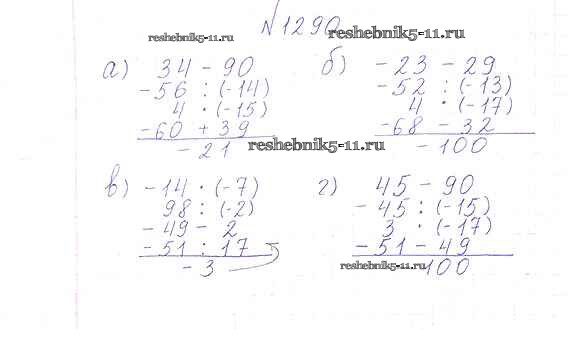 №1290
reshebnik5-11.ru reshebnik5-11.ru
а) 34 - 90 б) - 23 - 29
- 56 : (-14) - 52 : (-13)
4 · (-15) 4 · (-17)
- 60 + 39 - 68 - 32
- 21 reshebnik5-11.ru - 100
в) - 14 · (-7) г) 45 - 90
98 : (-2) - 45 : (-15)
- 49 - 2 3 · (-17)
- 51 : 17 - 51 - 49
- 3 reshebnik5-11.ru 100